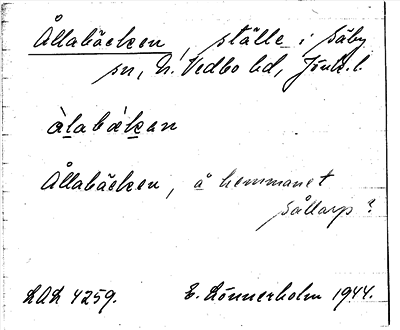 Ållabäcken, ställe i Säby
sn, N. Vedbo hd, Jönk. l.
àlabækan
Ållabäcken, å hemmanet
Sållarp?
LAL 4259. E. Lönnerholm 1944.